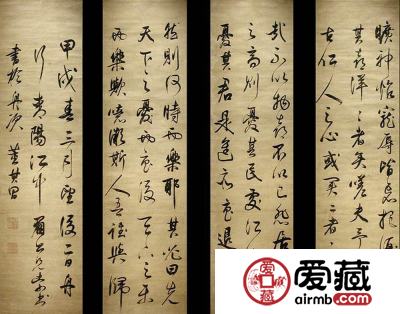 曠神怡寵辱皆忘把酒
其喜洋洋者矣嗟夫予
古仁人之心或異二者
哉不以物喜不以己悲居
之高則憂其民處江
憂其君是進亦憂退
然則何時而樂耶其必曰先
天下之憂而憂後天下之樂
而樂歟噫微斯人吾誰與歸
甲戌春三月望後二日舟
行青陽江中
書於舟次 董其昌
爱藏
airmb.com